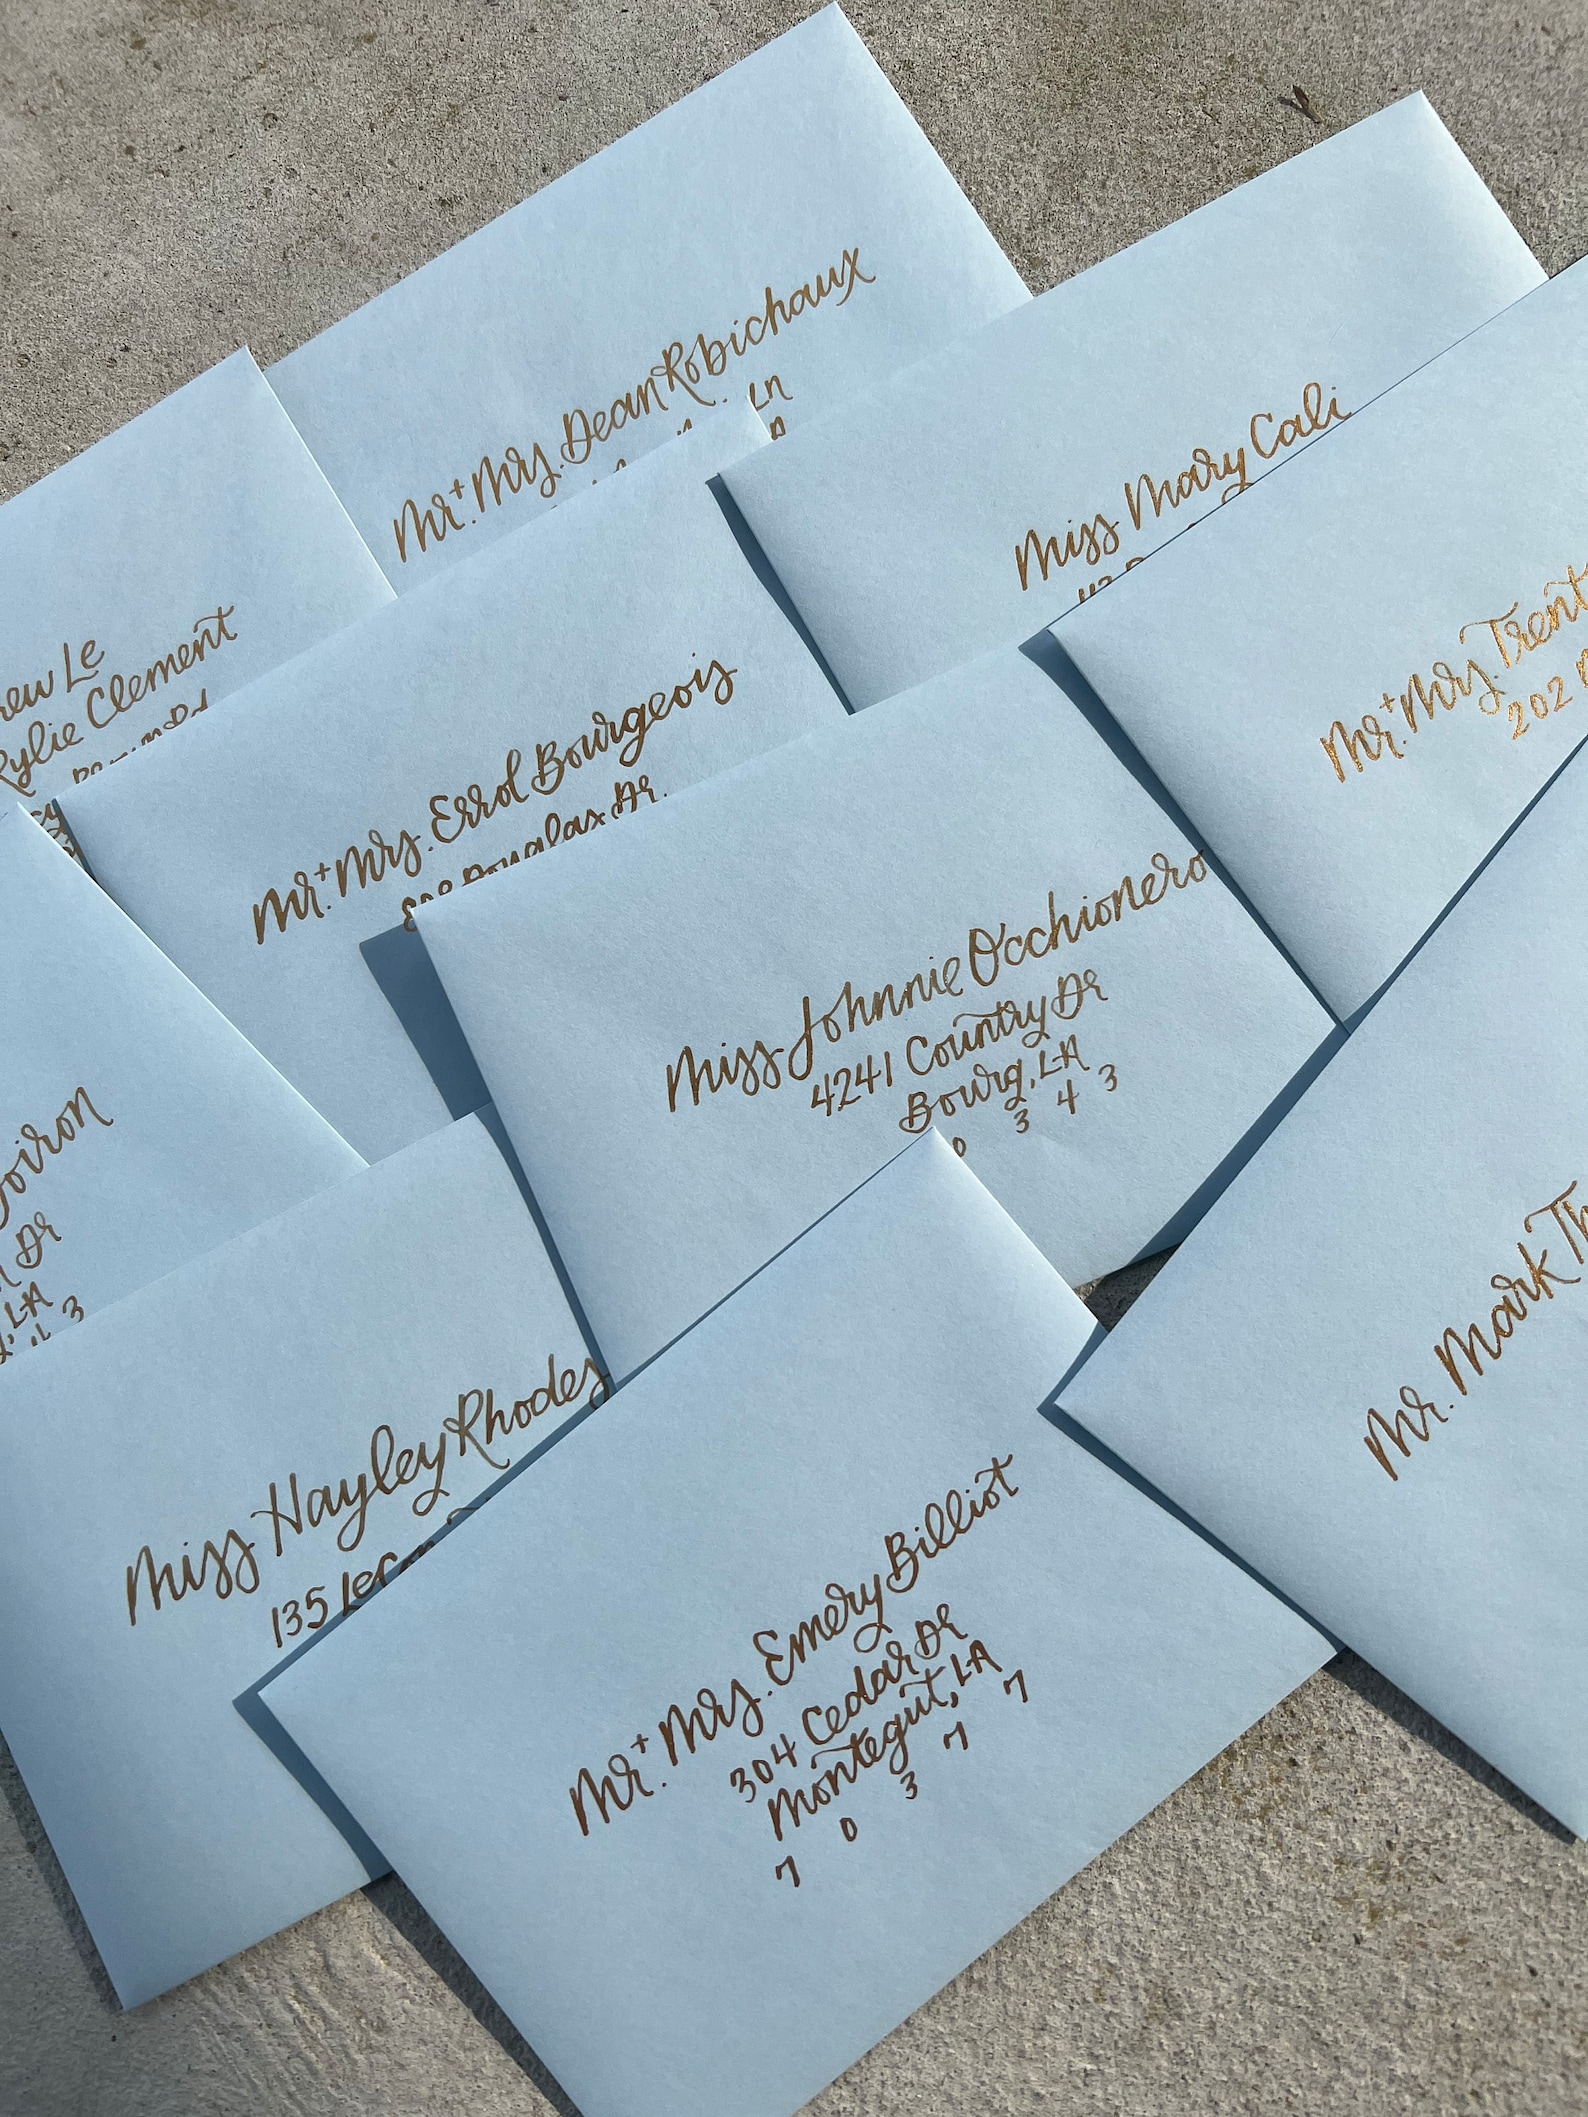 Mr. + Mrs. Dean Robichaux
Ln
Miss Mary Cali
Le
Rylie Clement
Rd
Mr. + Mrs. Trent
202
Mr. + Mrs. Errol Bourgeois
Douglas Dr.
Miss Johnnie Occhionero
4241 Country Dr
Bourg, LA
0 3 4 3
Dr
LA
3
Miss Hayley Rhodes
135
Mr. Mark
Mr. + Mrs. Emery Billiot
304 Cedar Dr
Montegut, LA
7 0 3 7 7